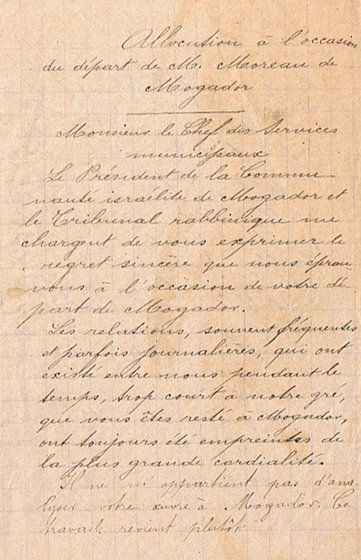 Allocution à l'occasion
du départ de M. Moreau de
Mogador
Monsieur le Chef des Services
municipaux
Le Président de la Commu
nauté israélite de Mogador et
le Tribunal rabbinique me
chargent de vous exprimer le
regret sincère que nous éprou
vons à l'occasion de votre dé
part de Mogador.
Les relations, souvent fréquentes
et parfois journalières, qui ont
existé entre nous pendant le
temps, trop court à notre gré,
que vous êtes resté à Mogador,
ont toujours été empreintes de
la plus grande cordialité.
Il ne m'appartient pas d'ana
lyser votre œuvre à Mogador. Ce
travail revient plutôt